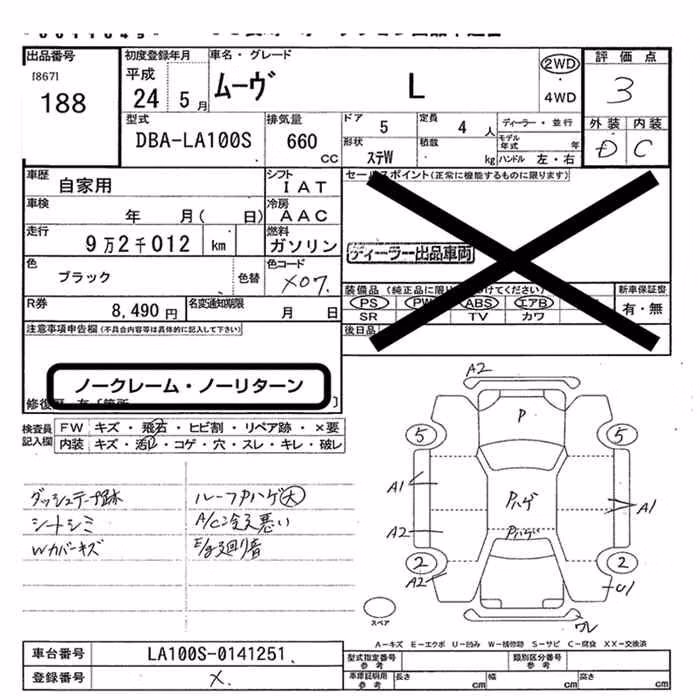 出品番号 初度登録年月 車名・グレード 2WD 評価点
[867] 平成 ムーヴ L 4WD 3
188 24 5月 外装 内装
型式 排気量 ドア 5 定員 4人 ディーラー・並行 D C
DBA-LA100S 660 CC 形状 ステW 積載 kg モデル年式 年 ハンドル 左・右
車歴 自家用 シフト IAT セールスポイント(正常に機能するものに限ります)
車検 年 月( 日) 冷房 AAC
走行 9万2千012 km 燃料 ガソリン ディーラー出品車両
色 ブラック 色替 色コード X07. 装備品 新車保証書
PS PW ABS エアB 有・無
R券 8,490円 名変通知期限 月 日 SR TV カワ
注意事項申告欄(不具合内容等は具体的に記入して下さい) 後日品
ノークレーム・ノーリターン
検査員記入欄 FW キズ・飛石・ヒビ割・リペア跡・×要
内装 キズ・汚れ・コゲ・穴・スレ・キレ・破レ
A2
P
5 5
ダッシュテープ跡 ルーフPハゲ大
A1 Pハゲ A1
シートシミ A/C冷え悪い
A2 Pハゲ
Wカバーキズ E/g廻り音
2 2
A2 U1
スペア ワレ
A-キズ E-エクボ U-凹み W-補修跡 S-サビ C-腐食 XX-交換済
車台番号 LA100S-0141251 型式指定番号 参考 類別区分番号 参考
登録番号 X. 車庫証明用 参考 長さ cm 幅 cm 高さ cm